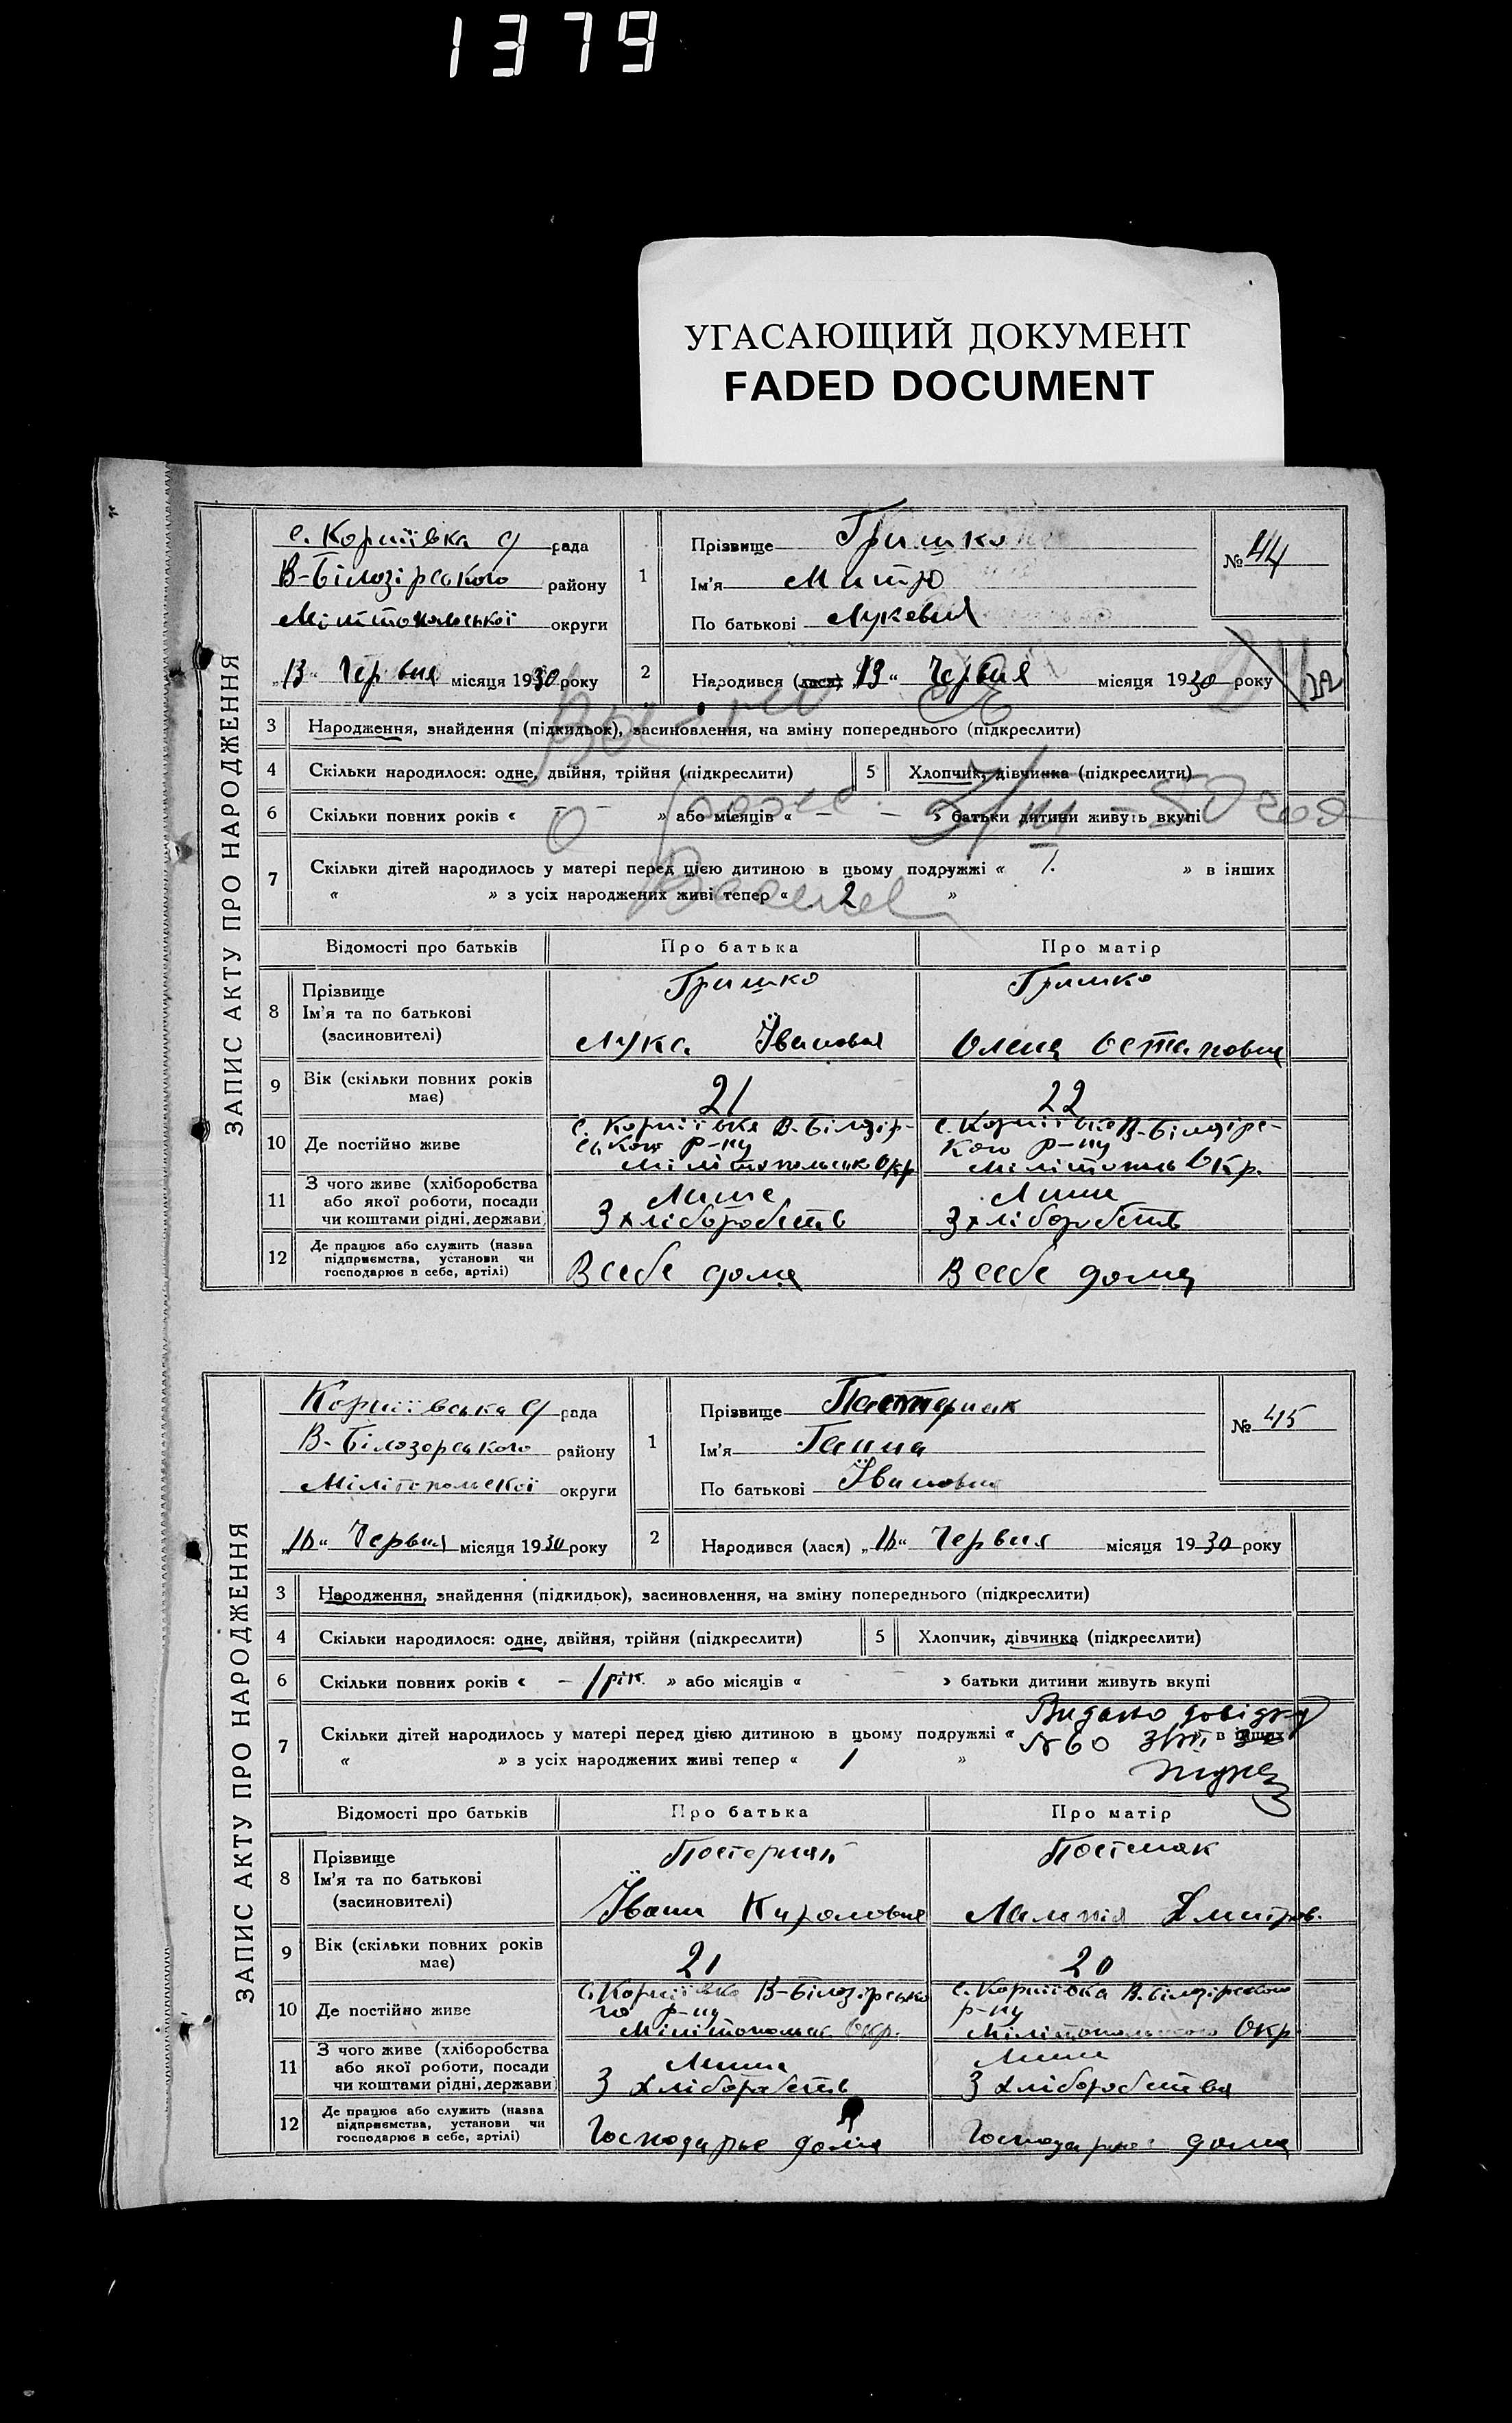 1379
УГАСАЮЩИЙ ДОКУМЕНТ
FADED DOCUMENT
ЗАПИС АКТУ ПРО НАРОДЖЕННЯ
с. Корніївка с/ рада
В-Білозірського району
округи
„13“ Червня місяця 1930 року
1 Прізвище Гришко
Ім'я Митро
По батькові Лукевич
№ 44
2 Народився (лася) „13“ Червня місяця 1930 року
3 Народження, знайдення (підкидьок), засиновлення, на зміну попереднього (підкреслити)
4 Скільки народилося: одне, двійня, трійня (підкреслити) 5 Хлопчик, дівчинка (підкреслити)
6 Скільки повних років « » або місяців « — — » батьки дитини живуть вкупі
7 Скільки дітей народилось у матері перед цією дитиною в цьому подружжі « 1. » в інших
« » з усіх народжених живі тепер « 2 »
Відомості про батьків Про батька Про матір
8 Прізвище
Ім'я та по батькові
(засиновителі)
Гришко
Лука Івановья
Гришко
Олена Остаповна
9 Вік (скільки повних років має)
21
22
10 Де постійно живе
с. Корніївка В-Білозір-
ського р-ну
Окр
с. Корніївка В-Білозірс-
кого р-ну
Мілітополь Окр.
11 З чого живе (хліборобства
або якої роботи, посади
чи коштами рідні, держави)
Лише
З хліборобств
Лише
З хліборобств
12 Де працює або служить (назва
підприємства, установи чи
господарює в себе, артілі)
В себе дома
В себе дома
ЗАПИС АКТУ ПРО НАРОДЖЕННЯ
Корніївська с/ рада
В-Білозорського району
Мілітопольскої округи
„16“ Червня місяця 1930 року
1 Прізвище Пастернак
Ім'я Ганна
По батькові Івановна
№ 45
2 Народився (лася) „16“ Червня місяця 1930 року
3 Народження, знайдення (підкидьок), засиновлення, на зміну попереднього (підкреслити)
4 Скільки народилося: одне, двійня, трійня (підкреслити) 5 Хлопчик, дівчинка (підкреслити)
6 Скільки повних років « — 1 рік » або місяців « » батьки дитини живуть вкупі
7 Скільки дітей народилось у матері перед цією дитиною в цьому подружжі « » в інших
Видано довідку
№ 60
« » з усіх народжених живі тепер « 1 »
Відомості про батьків Про батька Про матір
8 Прізвище
Ім'я та по батькові
(засиновителі)
Постернак
Іван
Постенак
Дмитров.
9 Вік (скільки повних років має)
21
20
10 Де постійно живе
с. Корніївка В-Білозірсько
го р-ну
Окр.
с. Корніївка В. Білозірского
р-ну
Окр
11 З чого живе (хліборобства
або якої роботи, посади
чи коштами рідні, держави)
Лише
З хліборобств
Лише
З хліборобства
12 Де працює або служить (назва
підприємства, установи чи
господарює в себе, артілі)
Господарює дома
Господарює дома